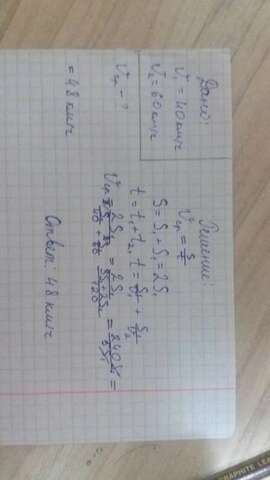 Дано:
V₁ = 40 км/ч
V₂ = 60 км/ч
Vср - ?
Решение:
Vср = S/t
S = S₁ + S₁ = 2S₁
t = t₁ + t₂, t = S₁/V₁ + S₁/V₂
Vср = 2S₁/(S₁/40 + S₁/60) = 2S₁/((3S₁ + 2S₁)/120) = 240S₁/5S₁ =
= 48 км/ч
Ответ: 48 км/ч